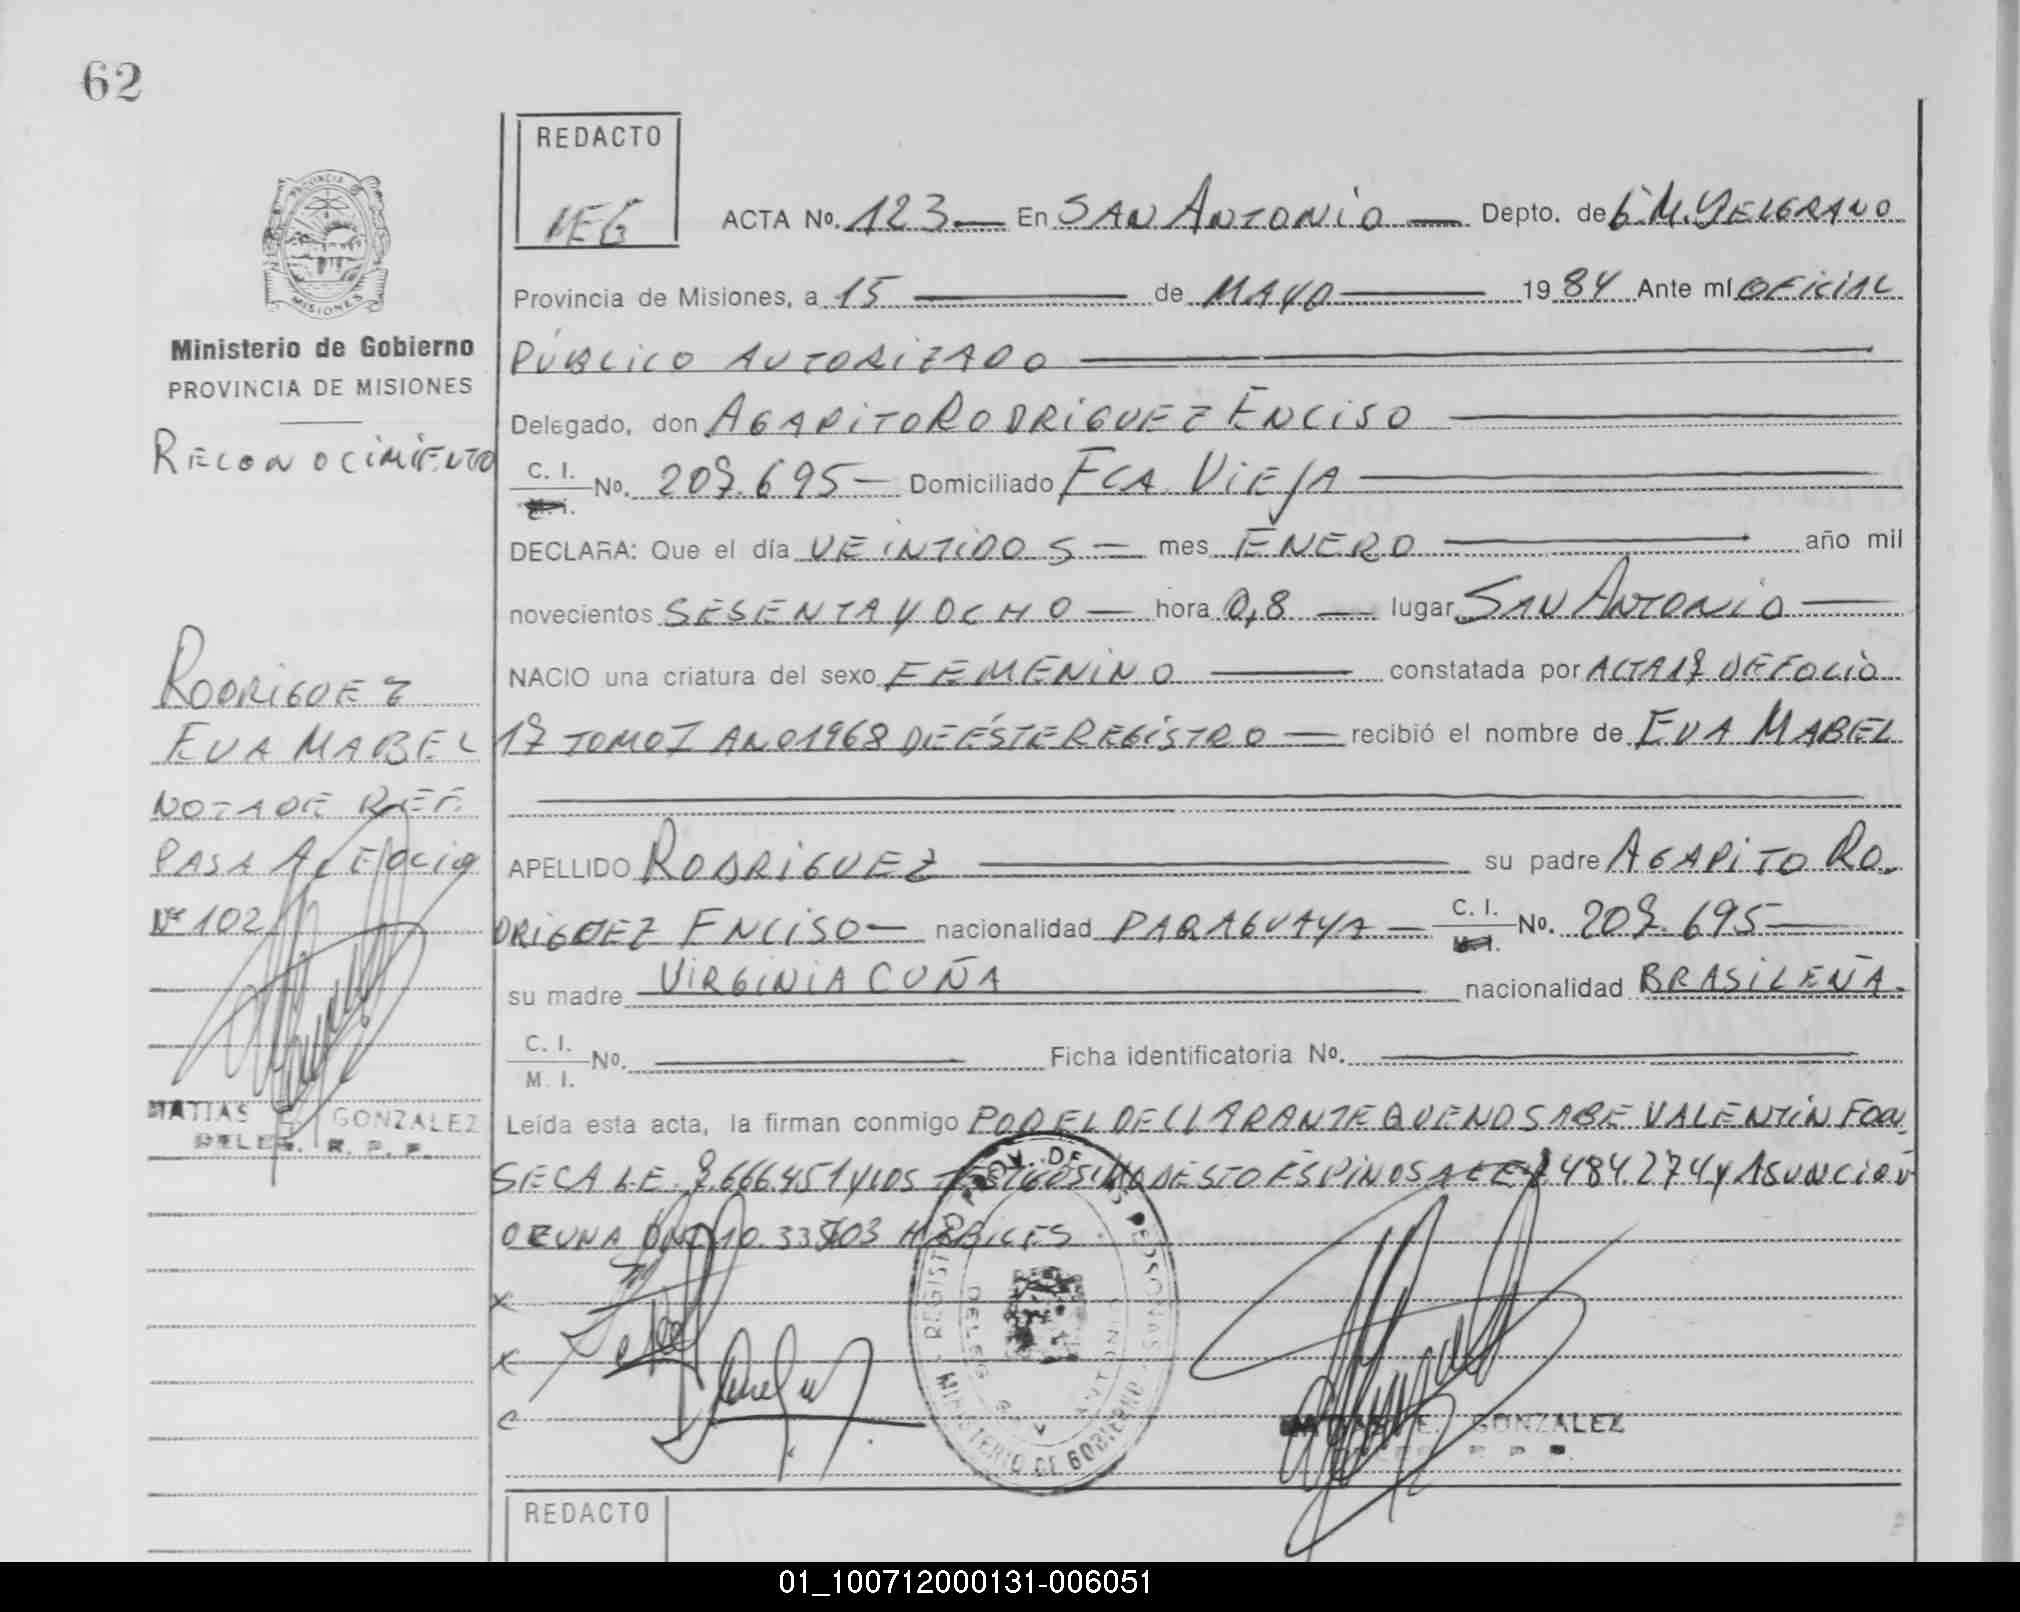 62
REDACTO
MEG
ACTA No. 123 — En SAN ANTONIO — Depto. de G. M. BELGRANO
Provincia de Misiones, a 15 — de MAYO — 1984 Ante mí OFICIAL
PÚBLICO AUTORIZADO
Delegado, don AGAPITO RODRIGUEZ ENCISO
C. I. No. 207.695 — Domiciliado FCA VIEJA
DECLARA: Que el día VEINTIDOS — mes ENERO — año mil
novecientos SESENTA Y OCHO — hora 0,8 — lugar SAN ANTONIO —
NACIO una criatura del sexo FEMENINO — constatada por ACTA 17 DE FOLIO
17 TOMO I AÑO 1968 DE ÉSTE REGISTRO — recibió el nombre de EVA MABEL
APELLIDO RODRIGUEZ — su padre AGAPITO RO-
DRIGUEZ ENCISO — nacionalidad PARAGUAYA — C. I. No. 207.695 —
su madre VIRGINIA CUÑA nacionalidad BRASILEÑA.
C. I. M. I. No. — Ficha identificatoria No. —
Leída esta acta, la firman conmigo POR EL DECLARANTE QUE NO SABE VALENTIN FON
SECA L.E. 7.666.451 Y LOS TESTIGOS MODESTO ESPINOSA LE 484.274 Y ASUNCION
OZUNA DNI 10.33 HABILES
MATIAS E. GONZALEZ
REGISTRO PROV. DE LAS PERSONAS
MINISTERIO DE GOBIERNO
DELEG. SAN ANTONIO
REDACTO
PROVINCIA DE
MISIONES
Ministerio de Gobierno
PROVINCIA DE MISIONES
RECONOCIMIENTO
RODRIGUEZ
EVA MABEL
NOTA DE REF.
PASA AL FOLIO
Nº 102
MATIAS E. GONZALEZ
DELEG. R. P. P.
01_100712000131-006051